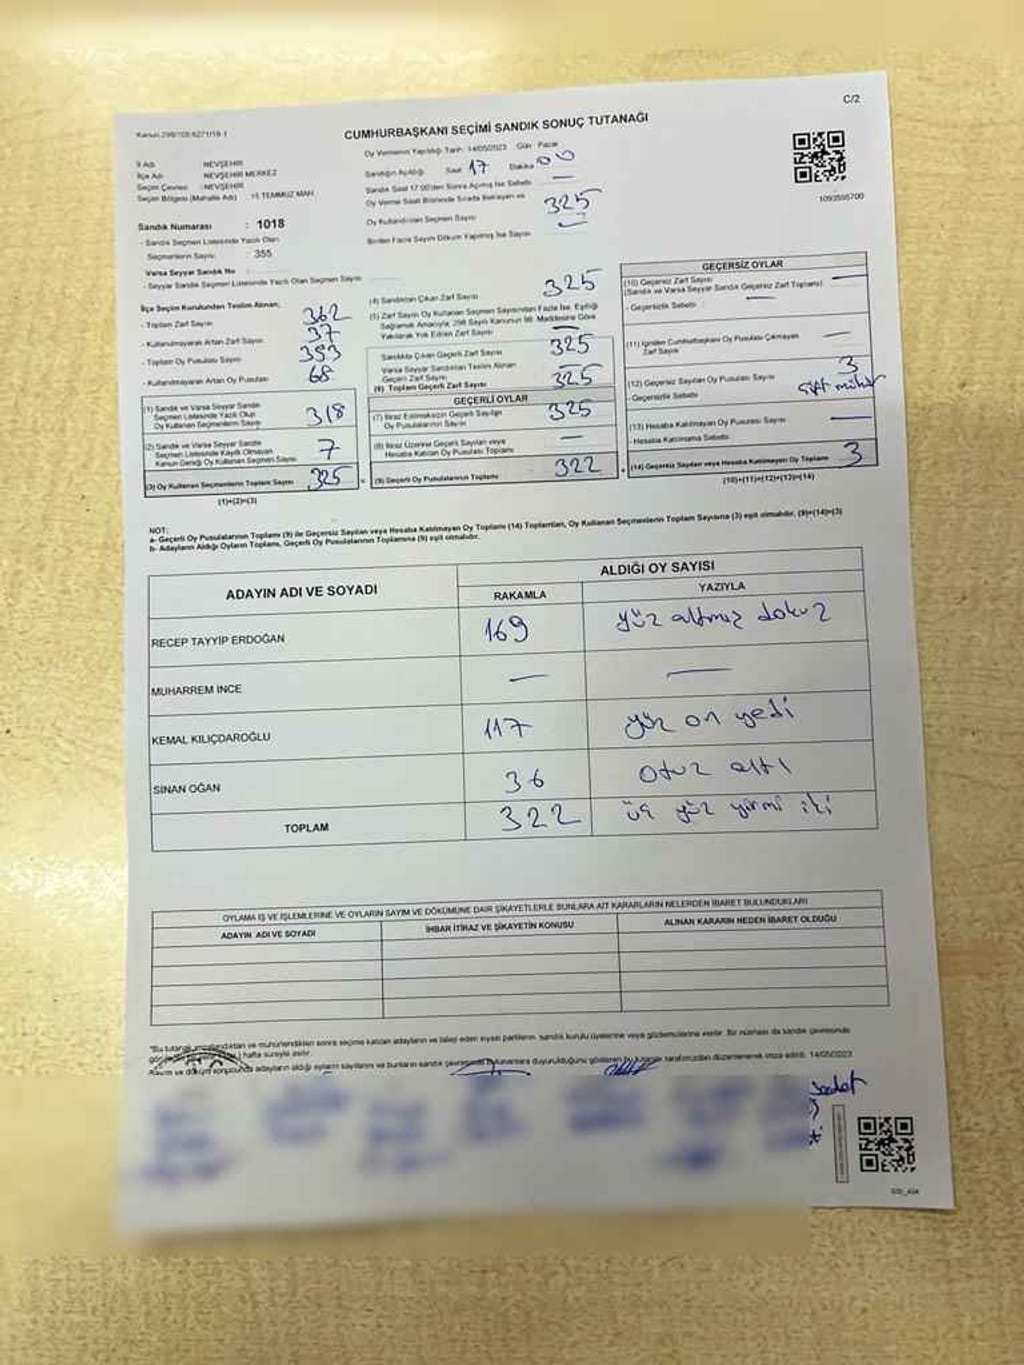 C/2
Kanun 298/105;6271/19-1
CUMHURBAŞKANI SEÇİMİ SANDIK SONUÇ TUTANAĞI
İl Adı : NEVŞEHİR
İlçe Adı : NEVŞEHİR MERKEZ
Seçim Çevresi : NEVŞEHİR
Seçim Bölgesi (Mahalle Adı) 15 TEMMUZ MAH
Sandık Numarası : 1018
- Sandık Seçmen Listesinde Yazılı Olan
Seçmenlerin Sayısı : 355
Varsa Seyyar Sandık No
- Seyyar Sandık Seçmen Listesinde Yazılı Olan Seçmen Sayısı
Oy Vermenin Yapıldığı Tarih: 14/05/2023 Gün: Pazar
Sandığın Açıldığı Saat 17 Dakika 00
Sandık Saat 17:00'den Sonra Açılmış İse Sebebi —
Oy Verme Saati Bitiminde Sırada Bekleyen ve
Oy Kullandırılan Seçmen Sayısı 325
Birden Fazla Sayım Döküm Yapılmış İse Sayısı —
1093595700
İlçe Seçim Kurulundan Teslim Alınan;
- Toplam Zarf Sayısı 362
- Kullanılmayarak Artan Zarf Sayısı 37
- Toplam Oy Pusulası Sayısı 393
- Kullanılmayarak Artan Oy Pusulası 68
(1) Sandık ve Varsa Seyyar Sandık
Seçmen Listesinde Yazılı Olup
Oy Kullanan Seçmenlerin Sayısı 318
(2) Sandık ve Varsa Seyyar Sandık
Seçmen Listesinde Kayıtlı Olmayan
Kanun Gereği Oy Kullanan Seçmen Sayısı 7
(3) Oy Kullanan Seçmenlerin Toplam Sayısı 325
(1)+(2)=(3)
(4) Sandıktan Çıkan Zarf Sayısı 325
(5) Zarf Sayısı Oy Kullanan Seçmen Sayısından Fazla İse, Eşitliği
Sağlamak Amacıyla, 298 Sayılı Kanunun 98. Maddesine Göre
Yakılarak Yok Edilen Zarf Sayısı —
Sandıkta Çıkan Geçerli Zarf Sayısı 325
Varsa Seyyar Sandıktan Teslim Alınan
Geçerli Zarf Sayısı —
(6) Toplam Geçerli Zarf Sayısı 325
GEÇERLİ OYLAR
(7) İtiraz Edilmeksizin Geçerli Sayılan
Oy Pusulalarının Sayısı 325
(8) İtiraz Üzerine Geçerli Sayılan veya
Hesaba Katılan Oy Pusulası Toplamı —
(9) Geçerli Oy Pusulalarının Toplamı 322
GEÇERSİZ OYLAR
(10) Geçersiz Zarf Sayısı —
(Sandık ve Varsa Seyyar Sandık Geçersiz Zarf Toplamı)
- Geçersizlik Sebebi —
(11) İçinden Cumhurbaşkanı Oy Pusulası Çıkmayan
Zarf Sayısı —
(12) Geçersiz Sayılan Oy Pusulası Sayısı 3
- Geçersizlik Sebebi çift mühür
(13) Hesaba Katılmayan Oy Pusulası Sayısı —
- Hesaba Katılmama Sebebi
(14) Geçersiz Sayılan veya Hesaba Katılmayan Oy Toplamı 3
(10)+(11)+(12)+(13)=(14)
NOT:
a- Geçerli Oy Pusulalarının Toplamı (9) ile Geçersiz Sayılan veya Hesaba Katılmayan Oy Toplamı (14) Toplamları, Oy Kullanan Seçmenlerin Toplam Sayısına (3) eşit olmalıdır. (9)+(14)=(3)
b- Adayların Aldığı Oyların Toplamı, Geçerli Oy Pusulalarının Toplamına (9) eşit olmalıdır.
ADAYIN ADI VE SOYADI ALDIĞI OY SAYISI
RAKAMLA YAZIYLA
RECEP TAYYİP ERDOĞAN 169 yüz altmış dokuz
MUHARREM İNCE — —
KEMAL KILIÇDAROĞLU 117 yüz on yedi
SİNAN OĞAN 36 otuz altı
TOPLAM 322 üç yüz yirmi iki
OYLAMA İŞ VE İŞLEMLERİNE VE OYLARIN SAYIM VE DÖKÜMÜNE DAİR ŞİKAYETLERLE BUNLARA AİT KARARLARIN NELERDEN İBARET BULUNDUKLARI
ADAYIN ADI VE SOYADI İHBAR İTİRAZ VE ŞİKAYETİN KONUSU ALINAN KARARIN NEDEN İBARET OLDUĞU
"Bu tutanak imzalandıktan ve mühürlendikten sonra seçime katılan adayların ve talep eden siyasi partilerin sandık kurulu üyelerine veya gözlemcilerine verilir. Bir nüshası da sandık çevresinde
hafta süreyle asılır.
Sayım ve döküm sonucunda adayların aldığı oyların sayılarını ve bunların sandık çevresinde bulunanlara duyurulduğunu gösteren bu tutanak tarafımızdan düzenlenerek imza edildi. 14/05/2023